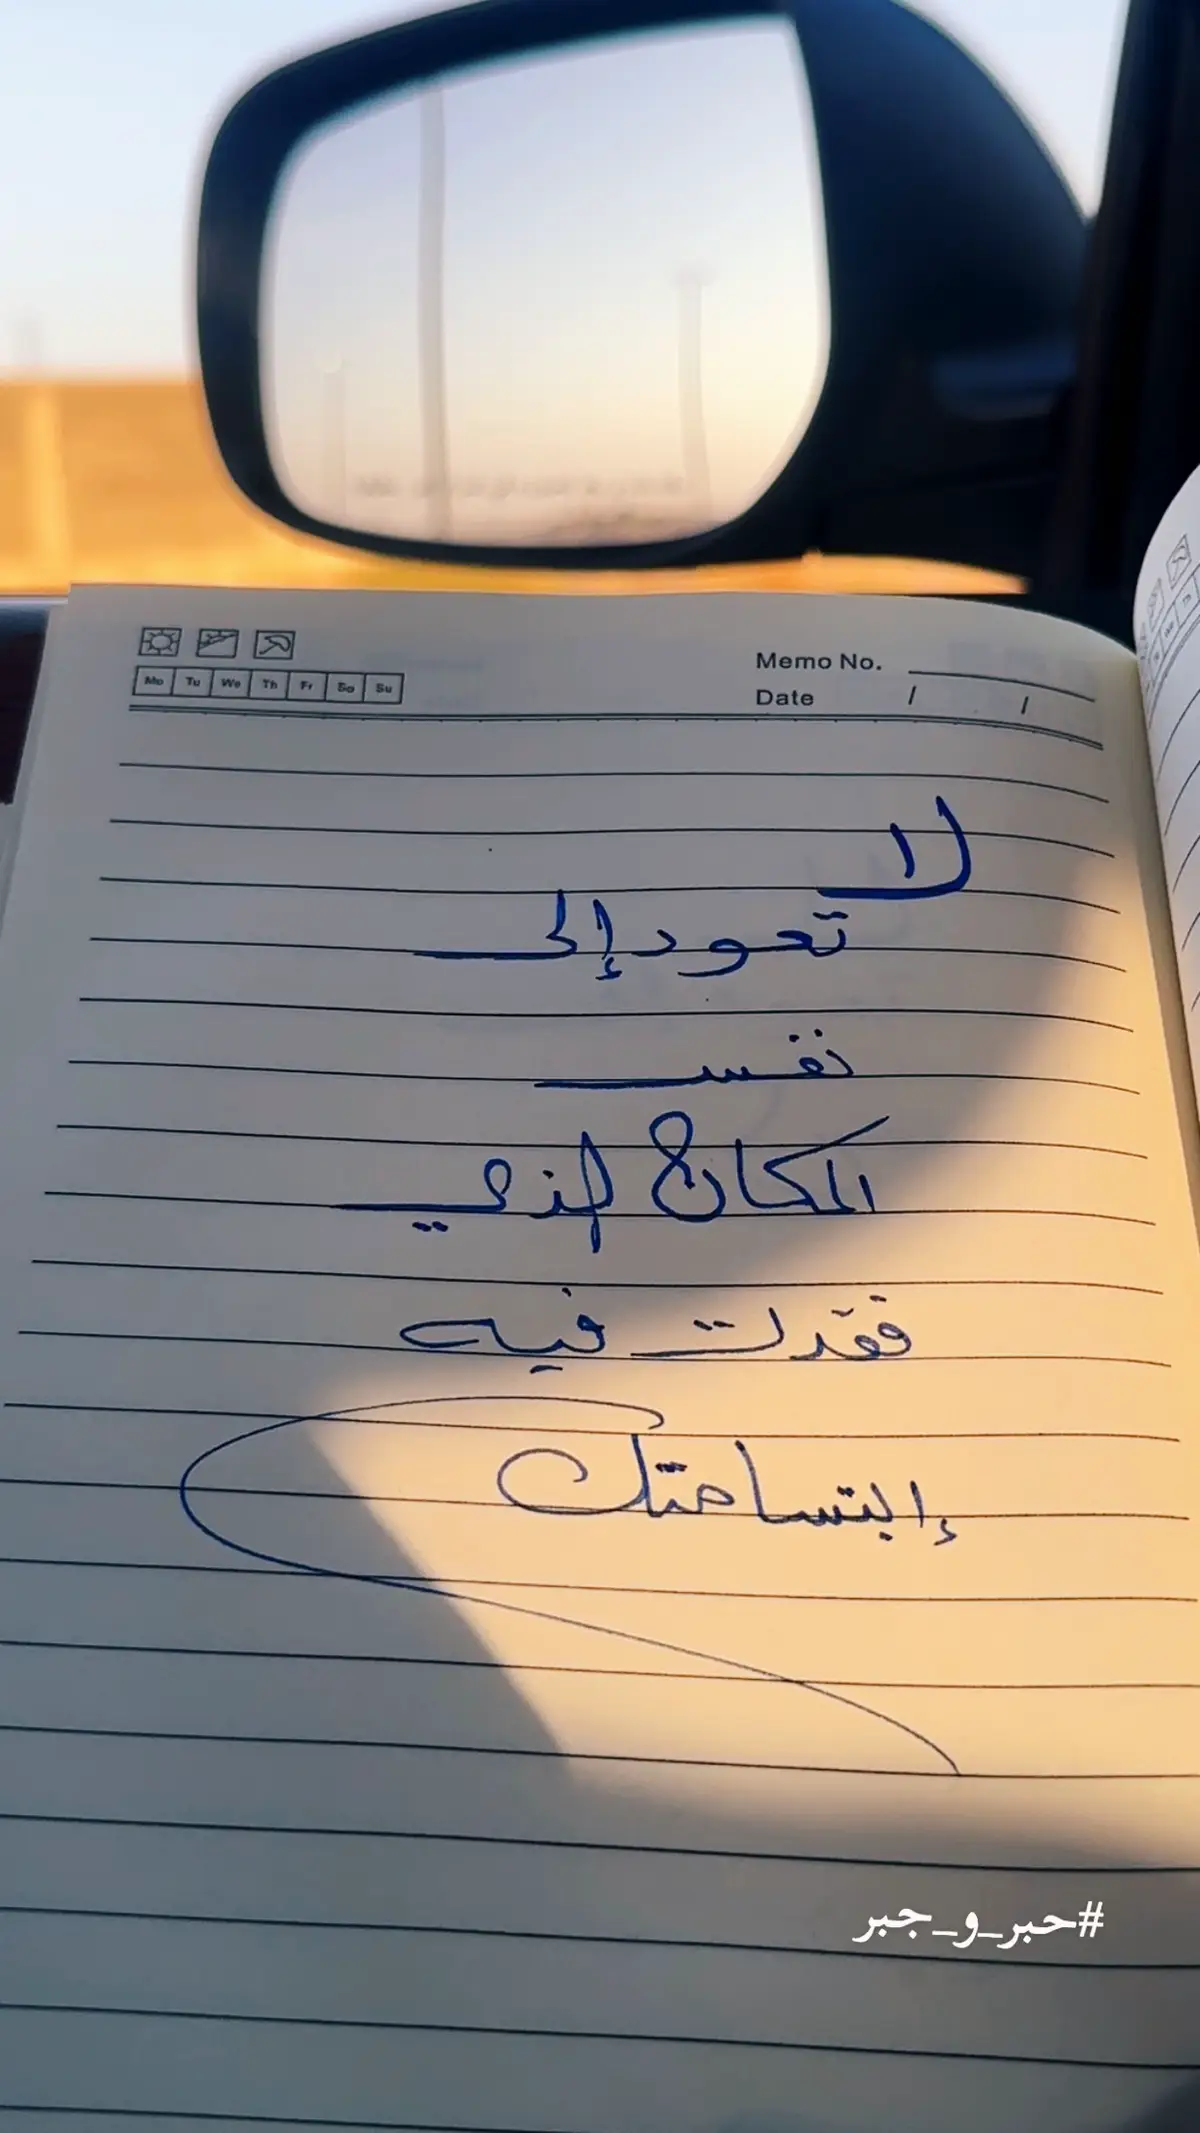 Memo No.
Mo Tu We Th Fr Sa Su
Date / /
لا
تعود إلى
نفس
المكان الذي
فقدت فيه
إبتسامتك
#حبر_و_جبر